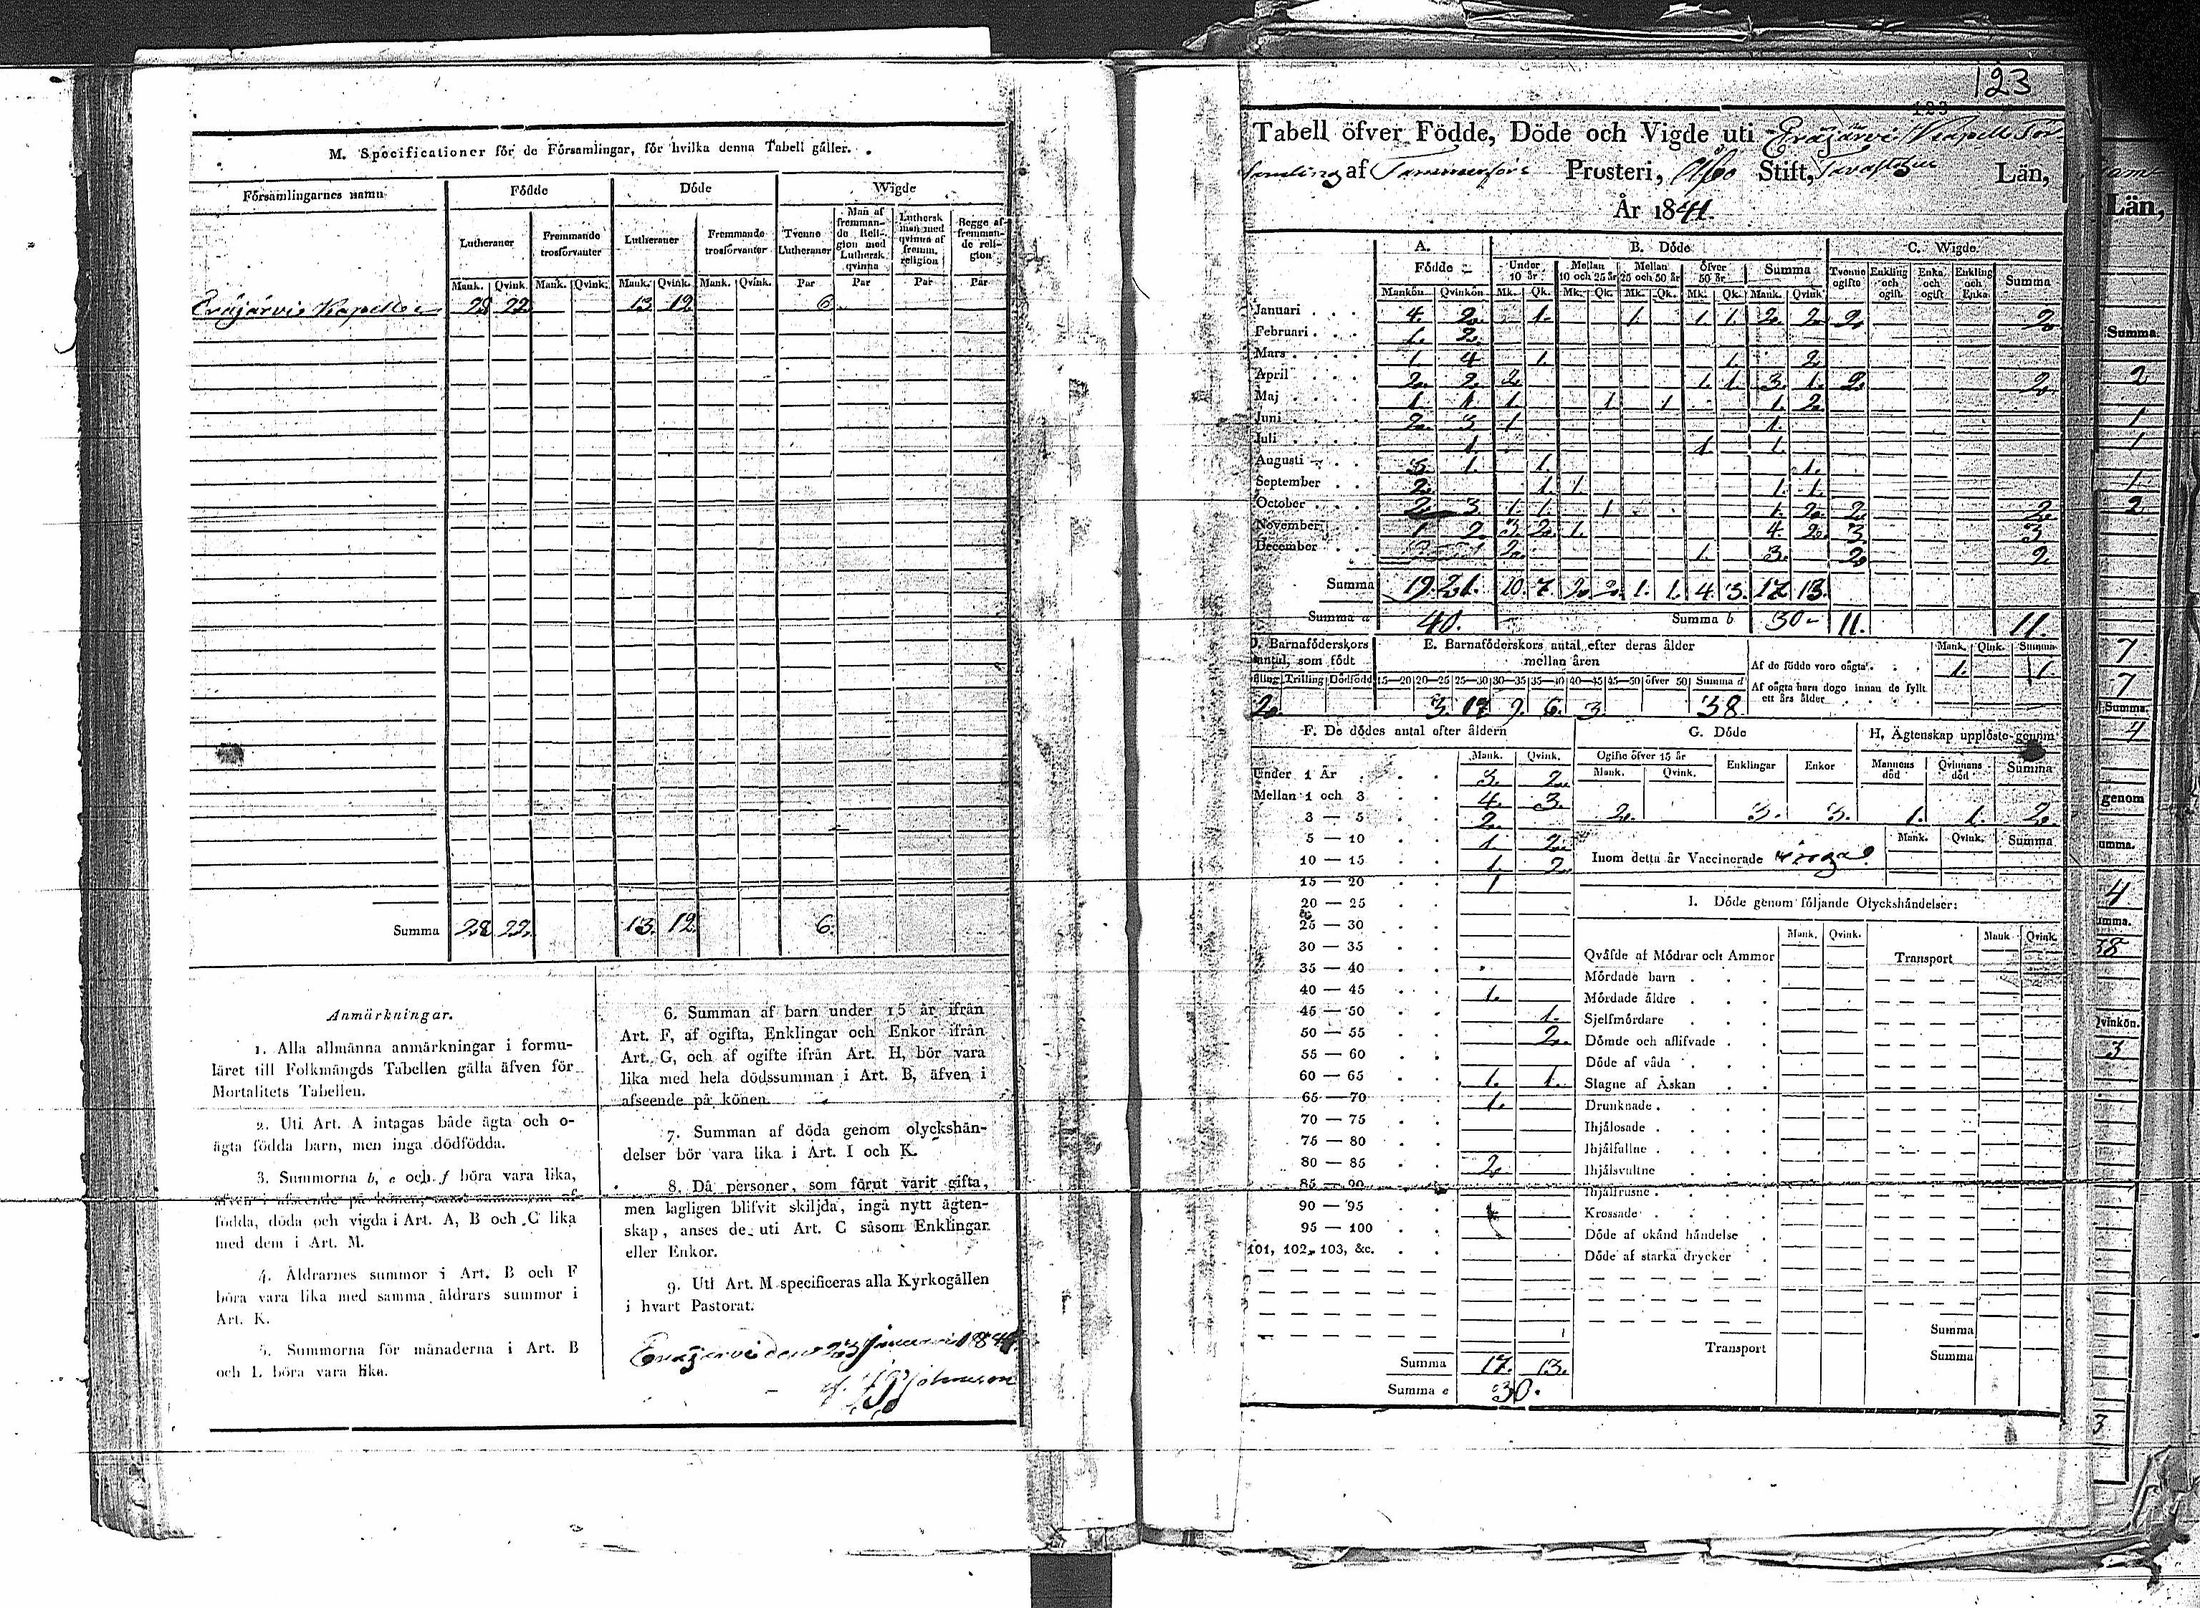 M. Specificationer för de Församlingar, för hvilka denna Tabell gäller.
Församlingarnes namn Födde Döde Wigde
Lutheraner Fremmande trosförvanter Lutheraner Fremmande trosförvanter Tvenne Lutheraner Man af fremmande Religion med Luthersk qvinna Luthersk man med qvinna af fremm. religion Begge af fremmande religion
Mank. Qvink. Mank. Qvink. Mank. Qvink. Mank. Qvink. Par Par Par Par
Eräjärvi Kapell 28 22 13 12 6.
Summa 28 22. 13. 12 6.
Anmärkningar.
1. Alla allmänna anmärkningar i formu-
läret till Folkmängds Tabellen gälla äfven för
Mortalitets Tabellen.
2. Uti Art. A intagas både ägta och o-
ägta födda barn, men inga dödfödda.
3. Summorna b, e och f böra vara lika,
äfven i afseende på könen, samt summorna af
födda, döda och vigda i Art. A, B och C lika
med dem i Art. M.
4. Åldrarnes summor i Art. B och F
böra vara lika med samma åldrars summor i
Art. K.
5. Summorna för månaderna i Art. B
och L böra vara lika.
6. Summan af barn under 15 år ifrån
Art. F, af ogifta, Enklingar och Enkor ifrån
Art. G, och af ogifte ifrån Art. H, bör vara
lika med hela dödssumman i Art. B, äfven i
afseende på könen.
7. Summan af döda genom olyckshän-
delser bör vara lika i Art. I och K.
8. Då personer, som förut varit gifta,
men lagligen blifvit skiljda, ingå nytt ägten-
skap, anses de uti Art. C såsom Enklingar
eller Enkor.
9. Uti Art. M specificeras alla Kyrkogällen
i hvart Pastorat.
Eräjärvi den 23 Januari
123
123
Tabell öfver Födde, Döde och Vigde uti Eräjärvi Kapell För
samling af Tammerfors Prosteri, Åbo Stift, Tavastehus Län,
År 1841.
A. B. Döde C. Wigde
Födde Under 10 år Mellan 10 och 25 år Mellan 25 och 50 år Öfver 50 år Summa Tvenne ogifte Enkling och ogift Enka och ogift Enkling och Enka Summa
Mankön Qvinkön Mk. Qk. Mk. Qk. Mk. Qk. Mk. Qk. Mank. Qvink.
Januari 4. 2. 1. 1. 1. 1. 2. 2. 2. 2.
Februari 1. 2.
Mars 1. 4 1. 1. 2
April 2. 2. 2 1. 1. 3. 1. 2. 2.
Maj 1. 1 1. 1. 1 1. 2.
Juni 2. 3 1 1.
Juli 1. 1. 1.
Augusti 3. 1. 1. 1.
September 2. 1. 1. 1. 1.
October 2. 3 1. 1. 1 1. 2. 2. 2.
November 1 2. 3. 2. 1. 4. 2. 3. 3.
December 2. 1. 3. 2. 2.
Summa 19. 21. 10. 7. 2. 2. 1. 1. 4. 3. 17. 13.
Summa a 40. Summa b 30 11. 11.
D. Barnaföderskors antal, som födt E. Barnaföderskors antal efter deras ålder mellan åren
Tvilling Trilling Dödfödd 15—20 20—25 25—30 30—35 35—40 40—45 45—50 öfver 50 Summa d
2. 3. 17. 9. 6. 3. 38.
Mank. Qink. Summa
Af de födde voro oägta 1. 1.
Af oägta barn dogo innan de fyllt
ett års ålder
F. De dödes antal efter åldern
Mank. Qvink.
Under 1 År 3. 2.
Mellan 1 och 3 4. 3.
3 — 5 2.
5 — 10 1 2.
10 — 15 1. 2.
15 — 20 1
20 — 25
25 — 30
30 — 35
35 — 40
40 — 45 1.
45 — 50 1.
50 — 55 2.
55 — 60
60 — 65 1. 1.
65 — 70 1.
70 — 75
75 — 80
80 — 85 2
85 — 90
90 — 95
95 — 100
101, 102, 103, &c.
Summa 17. 13.
Summa e 30.
G. Döde
Ogifte öfver 15 år Enklingar Enkor
Mank. Qvink.
2. 3. 3.
H. Ägtenskap upplöste genom
Mannens död Qvinnans död Summa
1. 1. 2.
Mank. Qvink. Summa
Inom detta år Vaccinerade inga.
I. Döde genom följande Olyckshändelser:
Mank. Qvink. Mank Qvink.
Qväfde af Mödrar och Ammor Transport
Mördade barn
Mördade äldre
Sjelfmördare
Dömde och aflifvade
Döde af våda
Slagne af Åskan
Drunknade
Ihjälosade
Ihjälfallne
Ihjälsvultne
Ihjälfrusne
Krossade
Döde af okänd händelse
Döde af starka drycker
Summa
Transport Summa
Län,
Summa
2
1
1
1
2
7
7
Summa.
4
genom
umma.
4
umma.
38
Qvinkön.
3
3